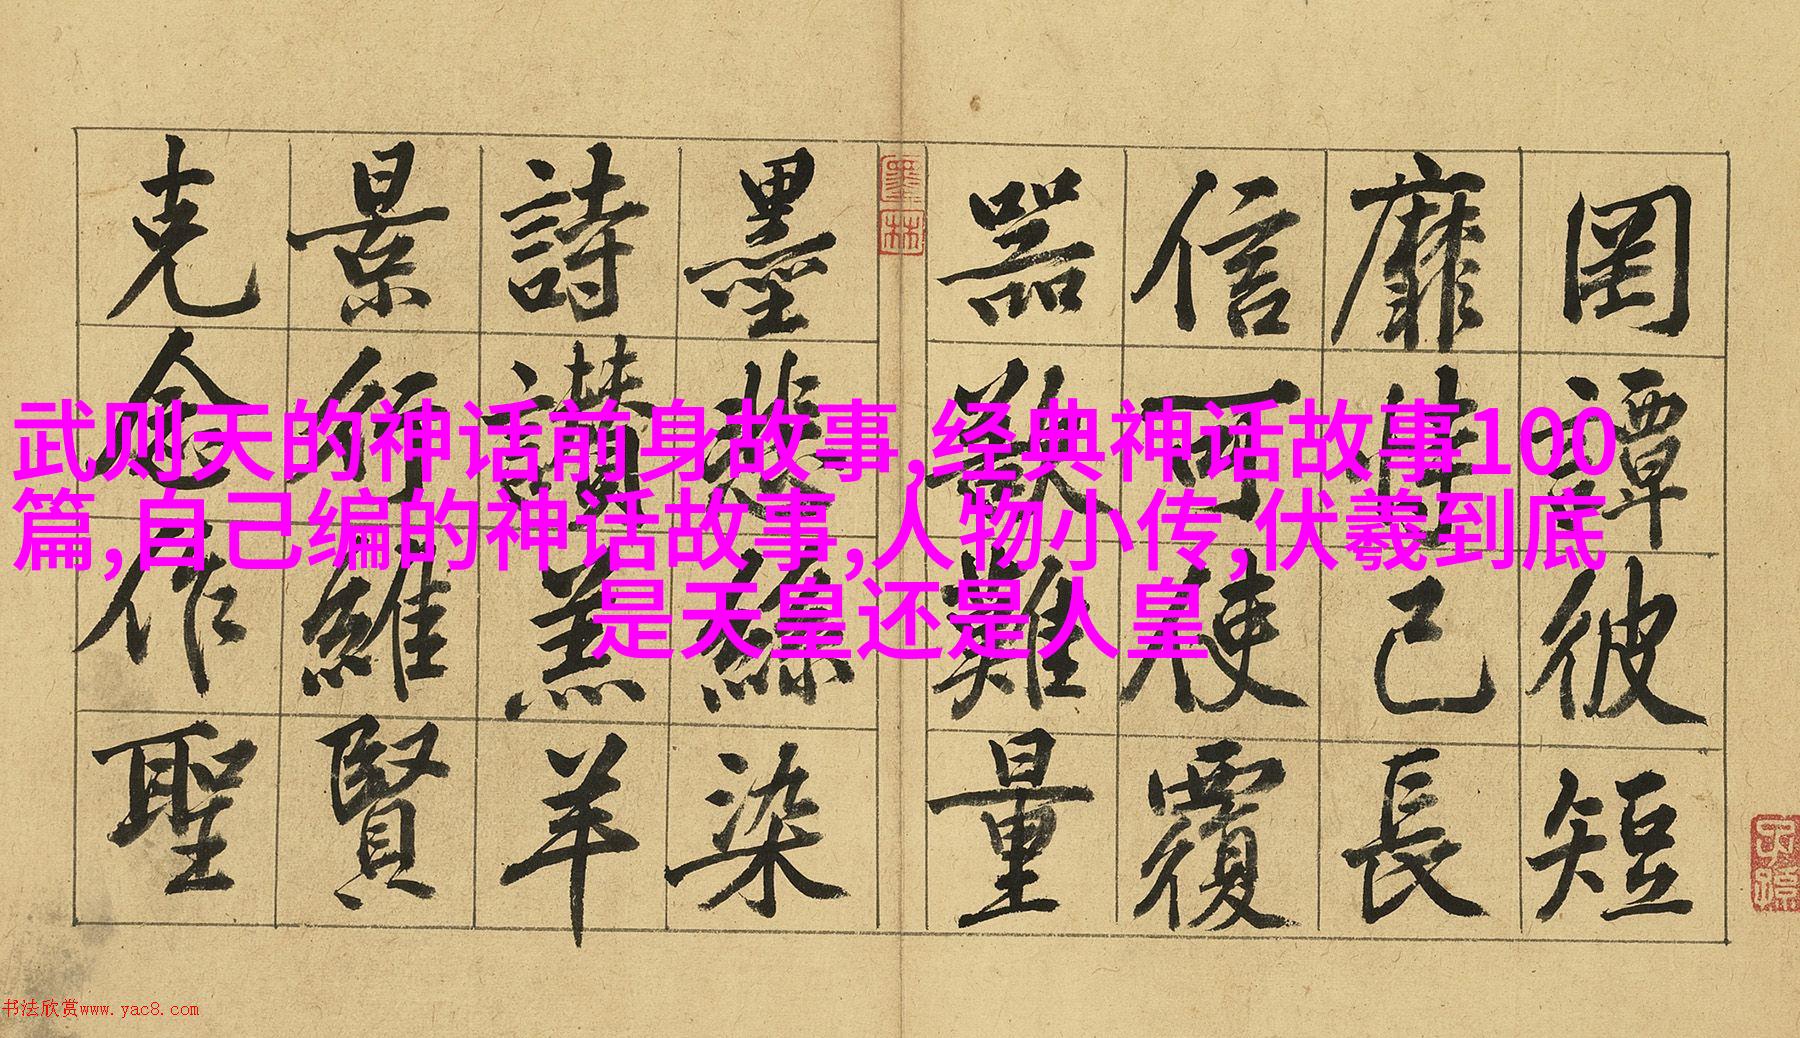 罔譚彼短
靡恃己長
信可使覆
器欲難量
墨林
墨悲絲染
詩讚羔羊
景行維賢
克念作聖
武则天的神话前身故事,经典神话故事100
篇,自己编的神话故事,人物小传,伏羲到底
是天皇还是人皇
子孫
书法欣赏www.yac8.com